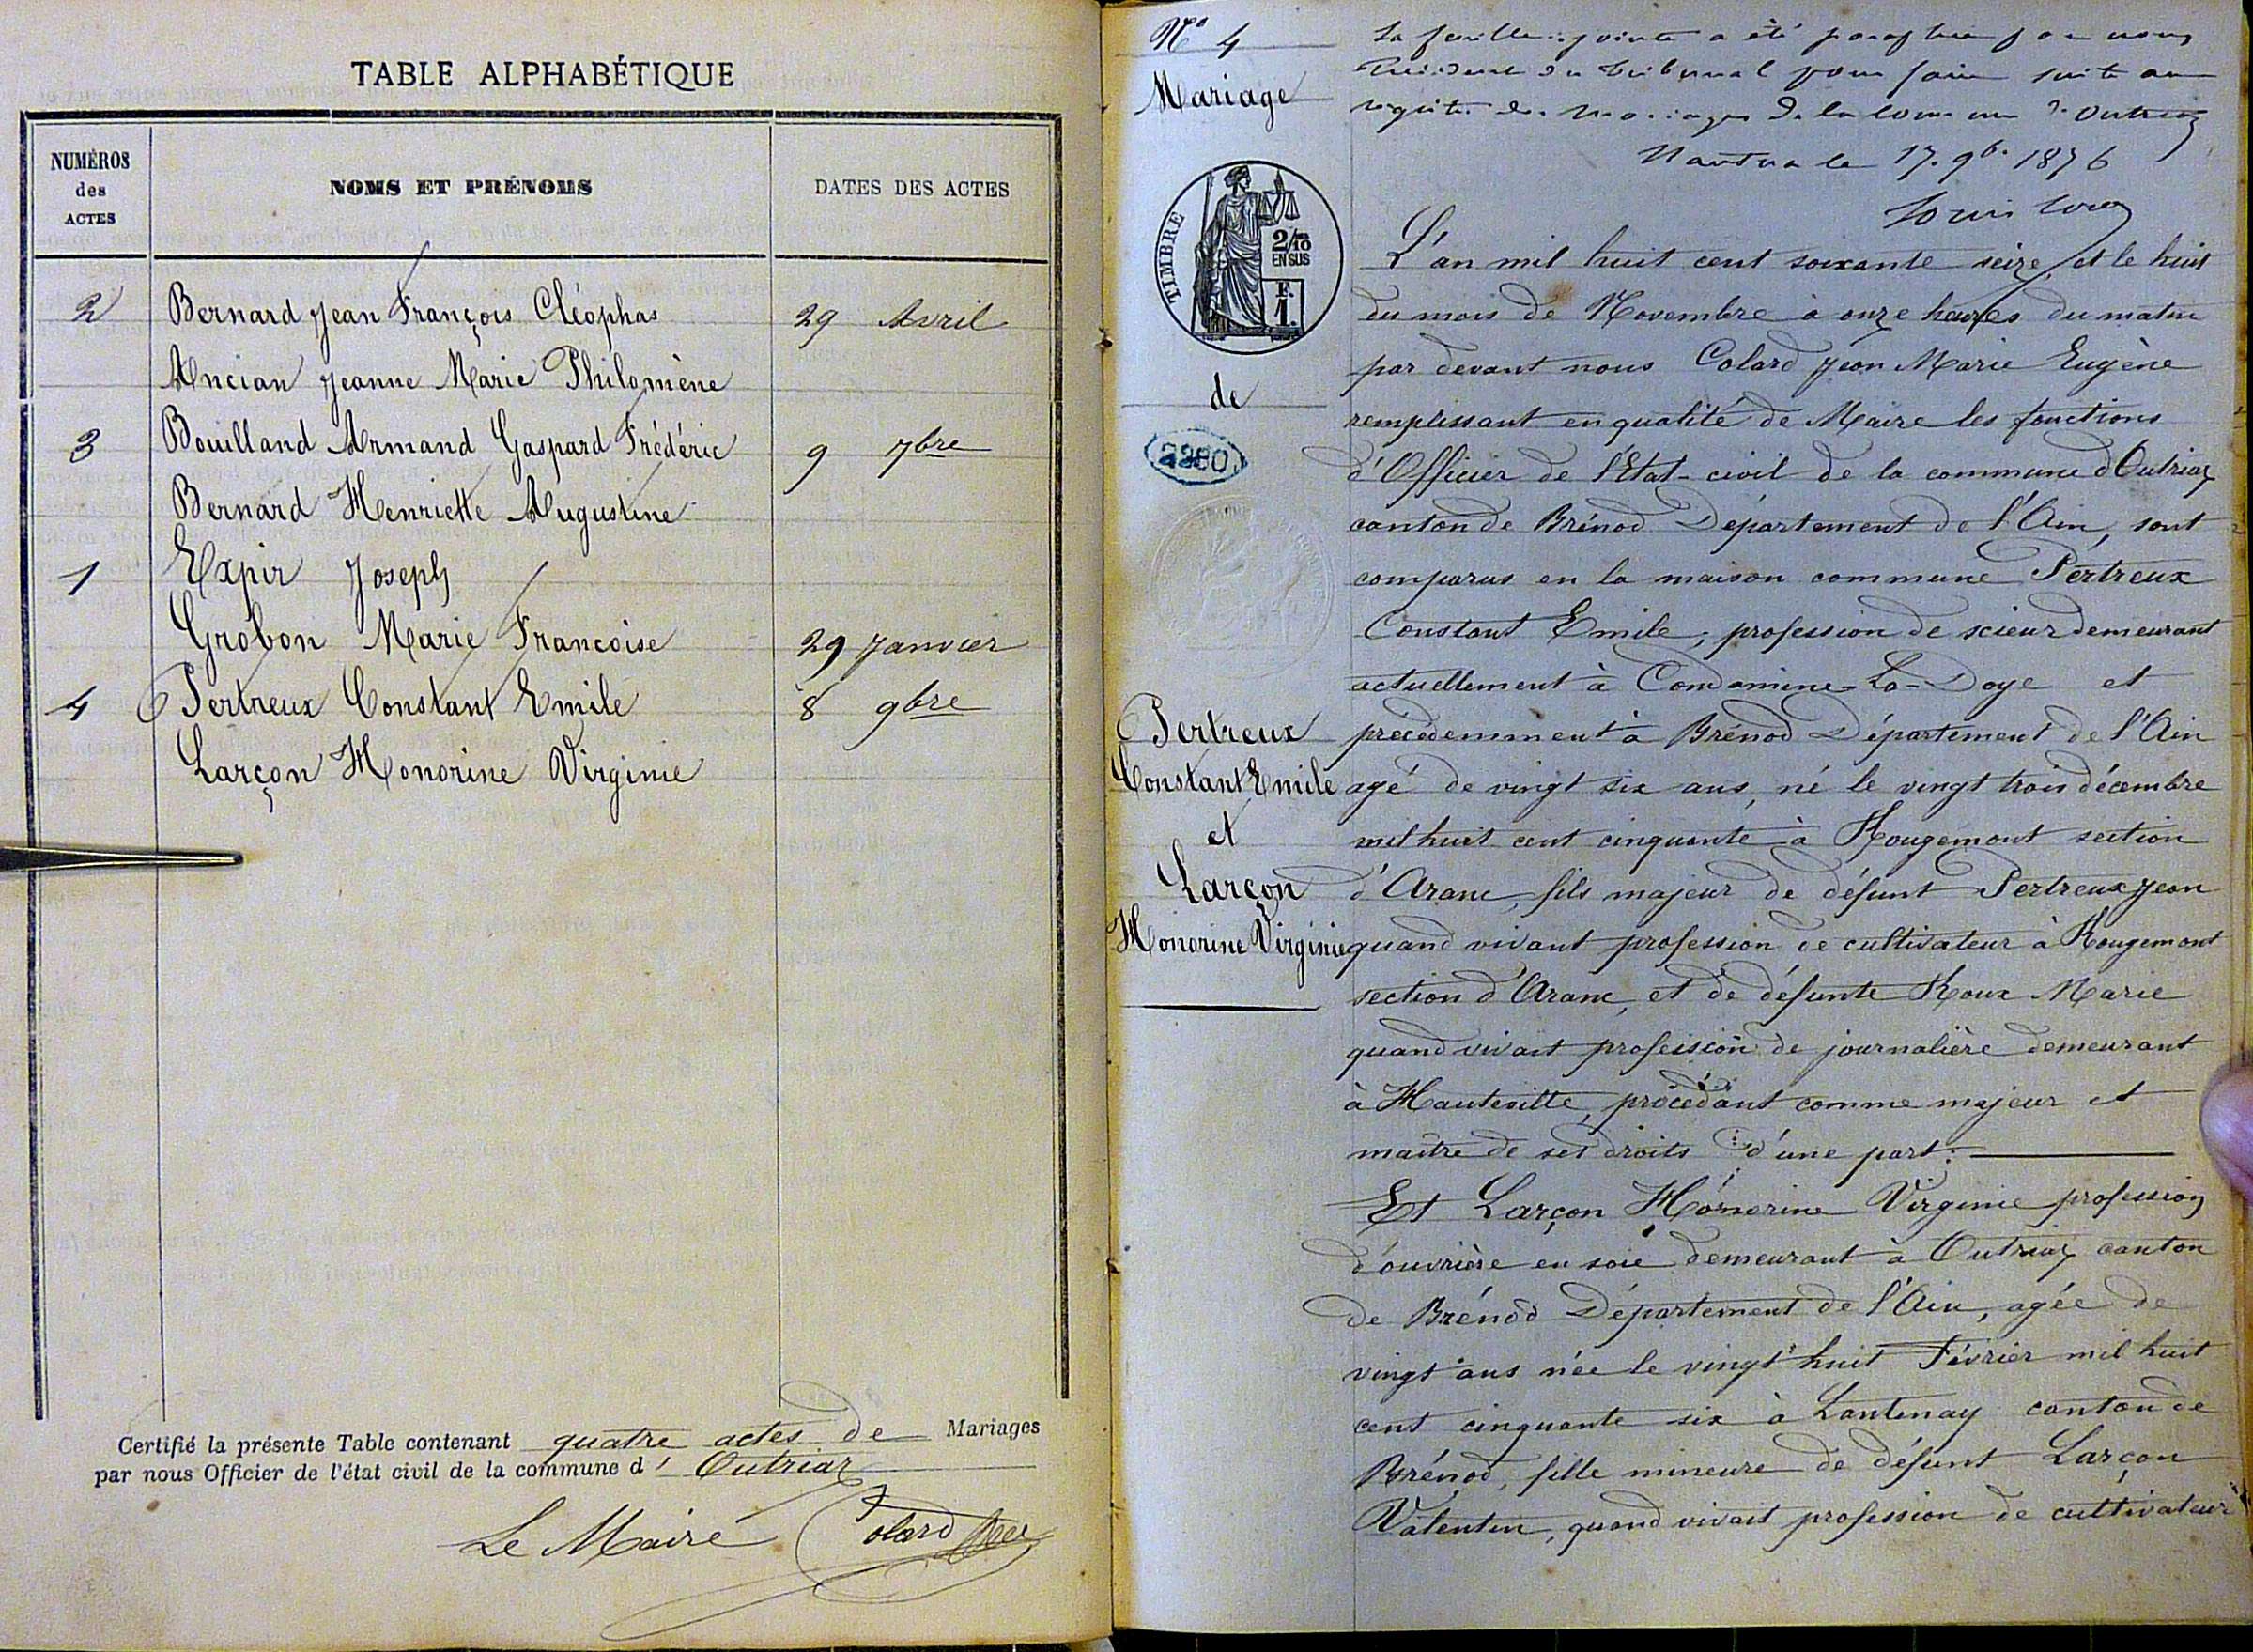 TABLE ALPHABÉTIQUE
NUMÉROS des ACTES
NOMS ET PRÉNOMS
DATES DES ACTES
2 Bernard Jean François Cléophas 29 Avril
Ancian Jeanne Marie Philomène
3 Bouilland Armand Gaspard Frédéric 9 7bre
Bernard Henriette Augustine
1 Expir Joseph
Grobon Marie Francoise 29 Janvier
4 Pertreux Constant Emile 8 9bre
Larçon Honorine Virginie
Certifié la présente Table contenant quatre actes de Mariages
par nous Officier de l'état civil de la commune d' Outriaz
Le Maire Colard
N° 4
Mariage
TIMBRE
2/10 EN SUS
F. 1.
de
2280
Pertreux
Constant Emile
et
Larçon
Honorine Virginie
La feuille ci jointe a été paraphée par nous
Président du Tribunal pour faire suite au
registre des mariages de la commune d'Outriaz
Nantua le 17. 9b. 1876
L'an mil huit cent soixante seize, et le huit
du mois de Novembre à onze heures du matin
par devant nous Colard Jean Marie Eugène
remplissant en qualité de Maire les fonctions
d'Officier de l'Etat-civil de la commune d'Outriaz
canton de Brénod Département de l'Ain, sont
comparus en la maison commune Pertreux
Constant Emile, profession de scieur demeurant
actuellement à Condamine-La-Doye et
précédemment à Brénod Département de l'Ain
agé de vingt six ans, né le vingt trois décembre
mil huit cent cinquante à Rougemont section
d'Aranc, fils majeur de défunt Pertreux Jean
quand vivant profession de cultivateur à Rougemont
section d'Aranc, et de défunte Roux Marie
quand vivait profession de journalière demeurant
à Hauteville, procédant comme majeur et
maitre de ses droits d'une part:
Et Larçon Honorine Virginie profession
d'ouvrière en soie demeurant à Outriaz canton
de Brénod Département de l'Ain, agée de
vingt ans née le vingt huit Février mil huit
cent cinquante six à Lantenay canton de
Brénod, fille mineure de défunt Larçon
Valentin, quand vivait profession de cultivateur